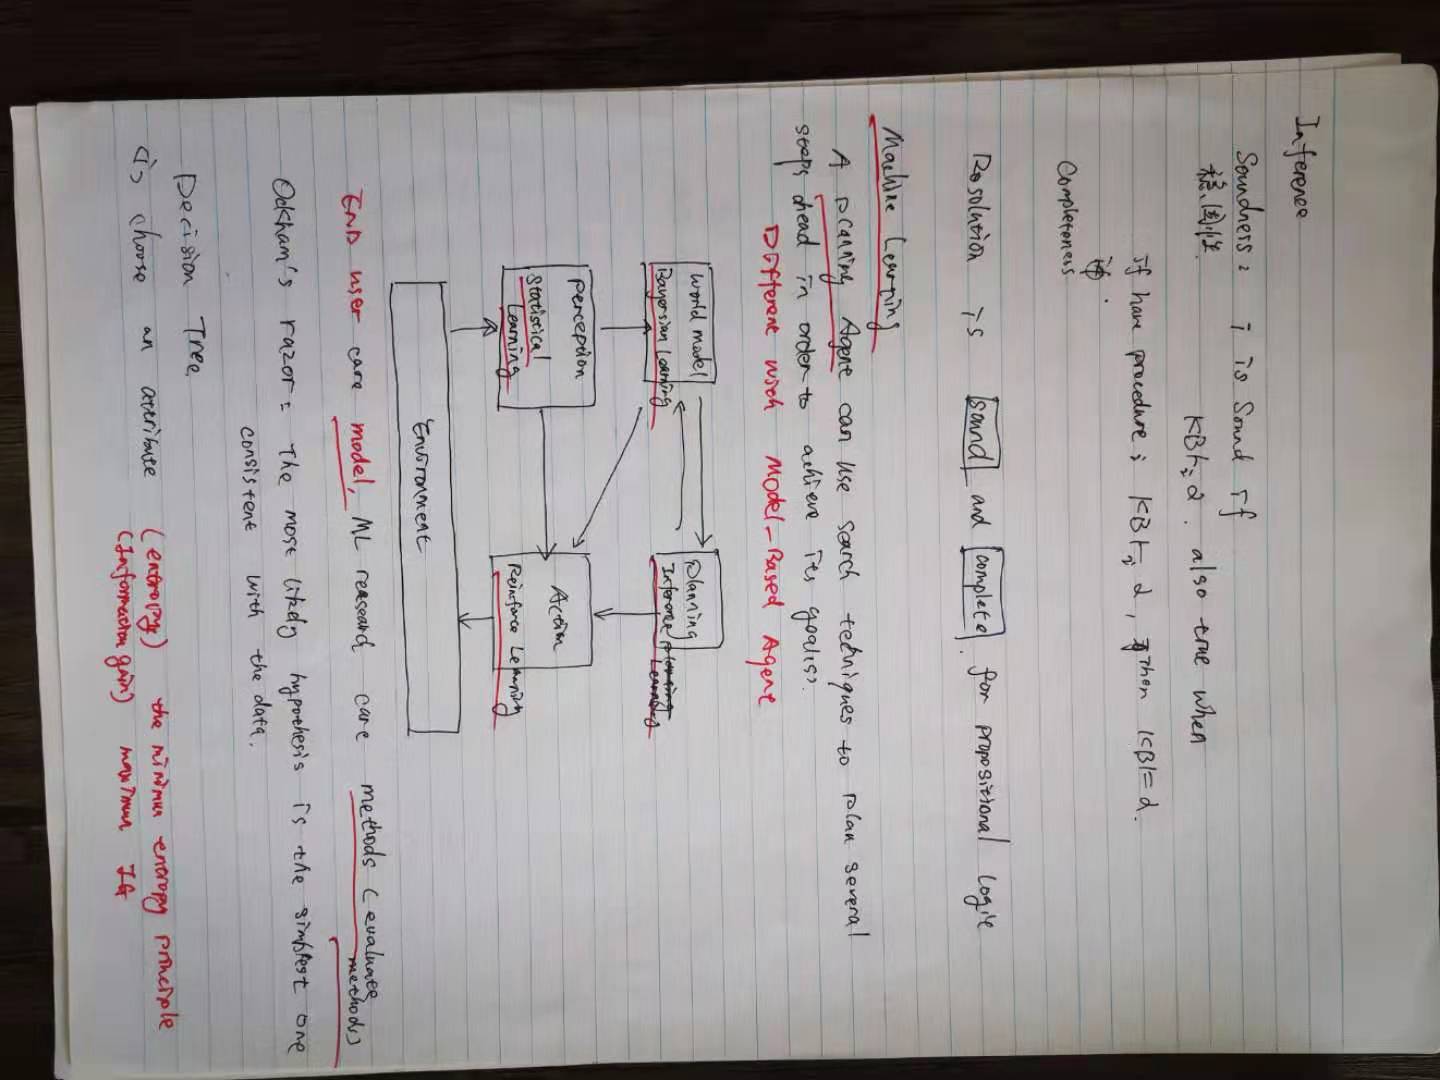 Inference
Soundness: i is Sound if
稳固性. KB⊢i α. also true when
if have procedure i KB⊢i α, Then KB⊨α.
Completeness
Resolution is sound and complete. for propositional Logic
Machine Learning
A planning Agent can use search techniques to plan several
steps ahead in order to achieve its goal(s).
Different with Model-Based Agent
World model
Bayersian Learning
Planning
Inference Learning
Perception
Statistical
Learning
Action
Reinforce Learning
Environment
END user care model, ML researd care methods (evaluate
methods)
Ockham's razor: The most likely hypothesis is the simplest one
consistent with the data.
Decision Tree
(entropy) the minimun entropy principle
(1) choose an attribute (Information gain) maximum IG